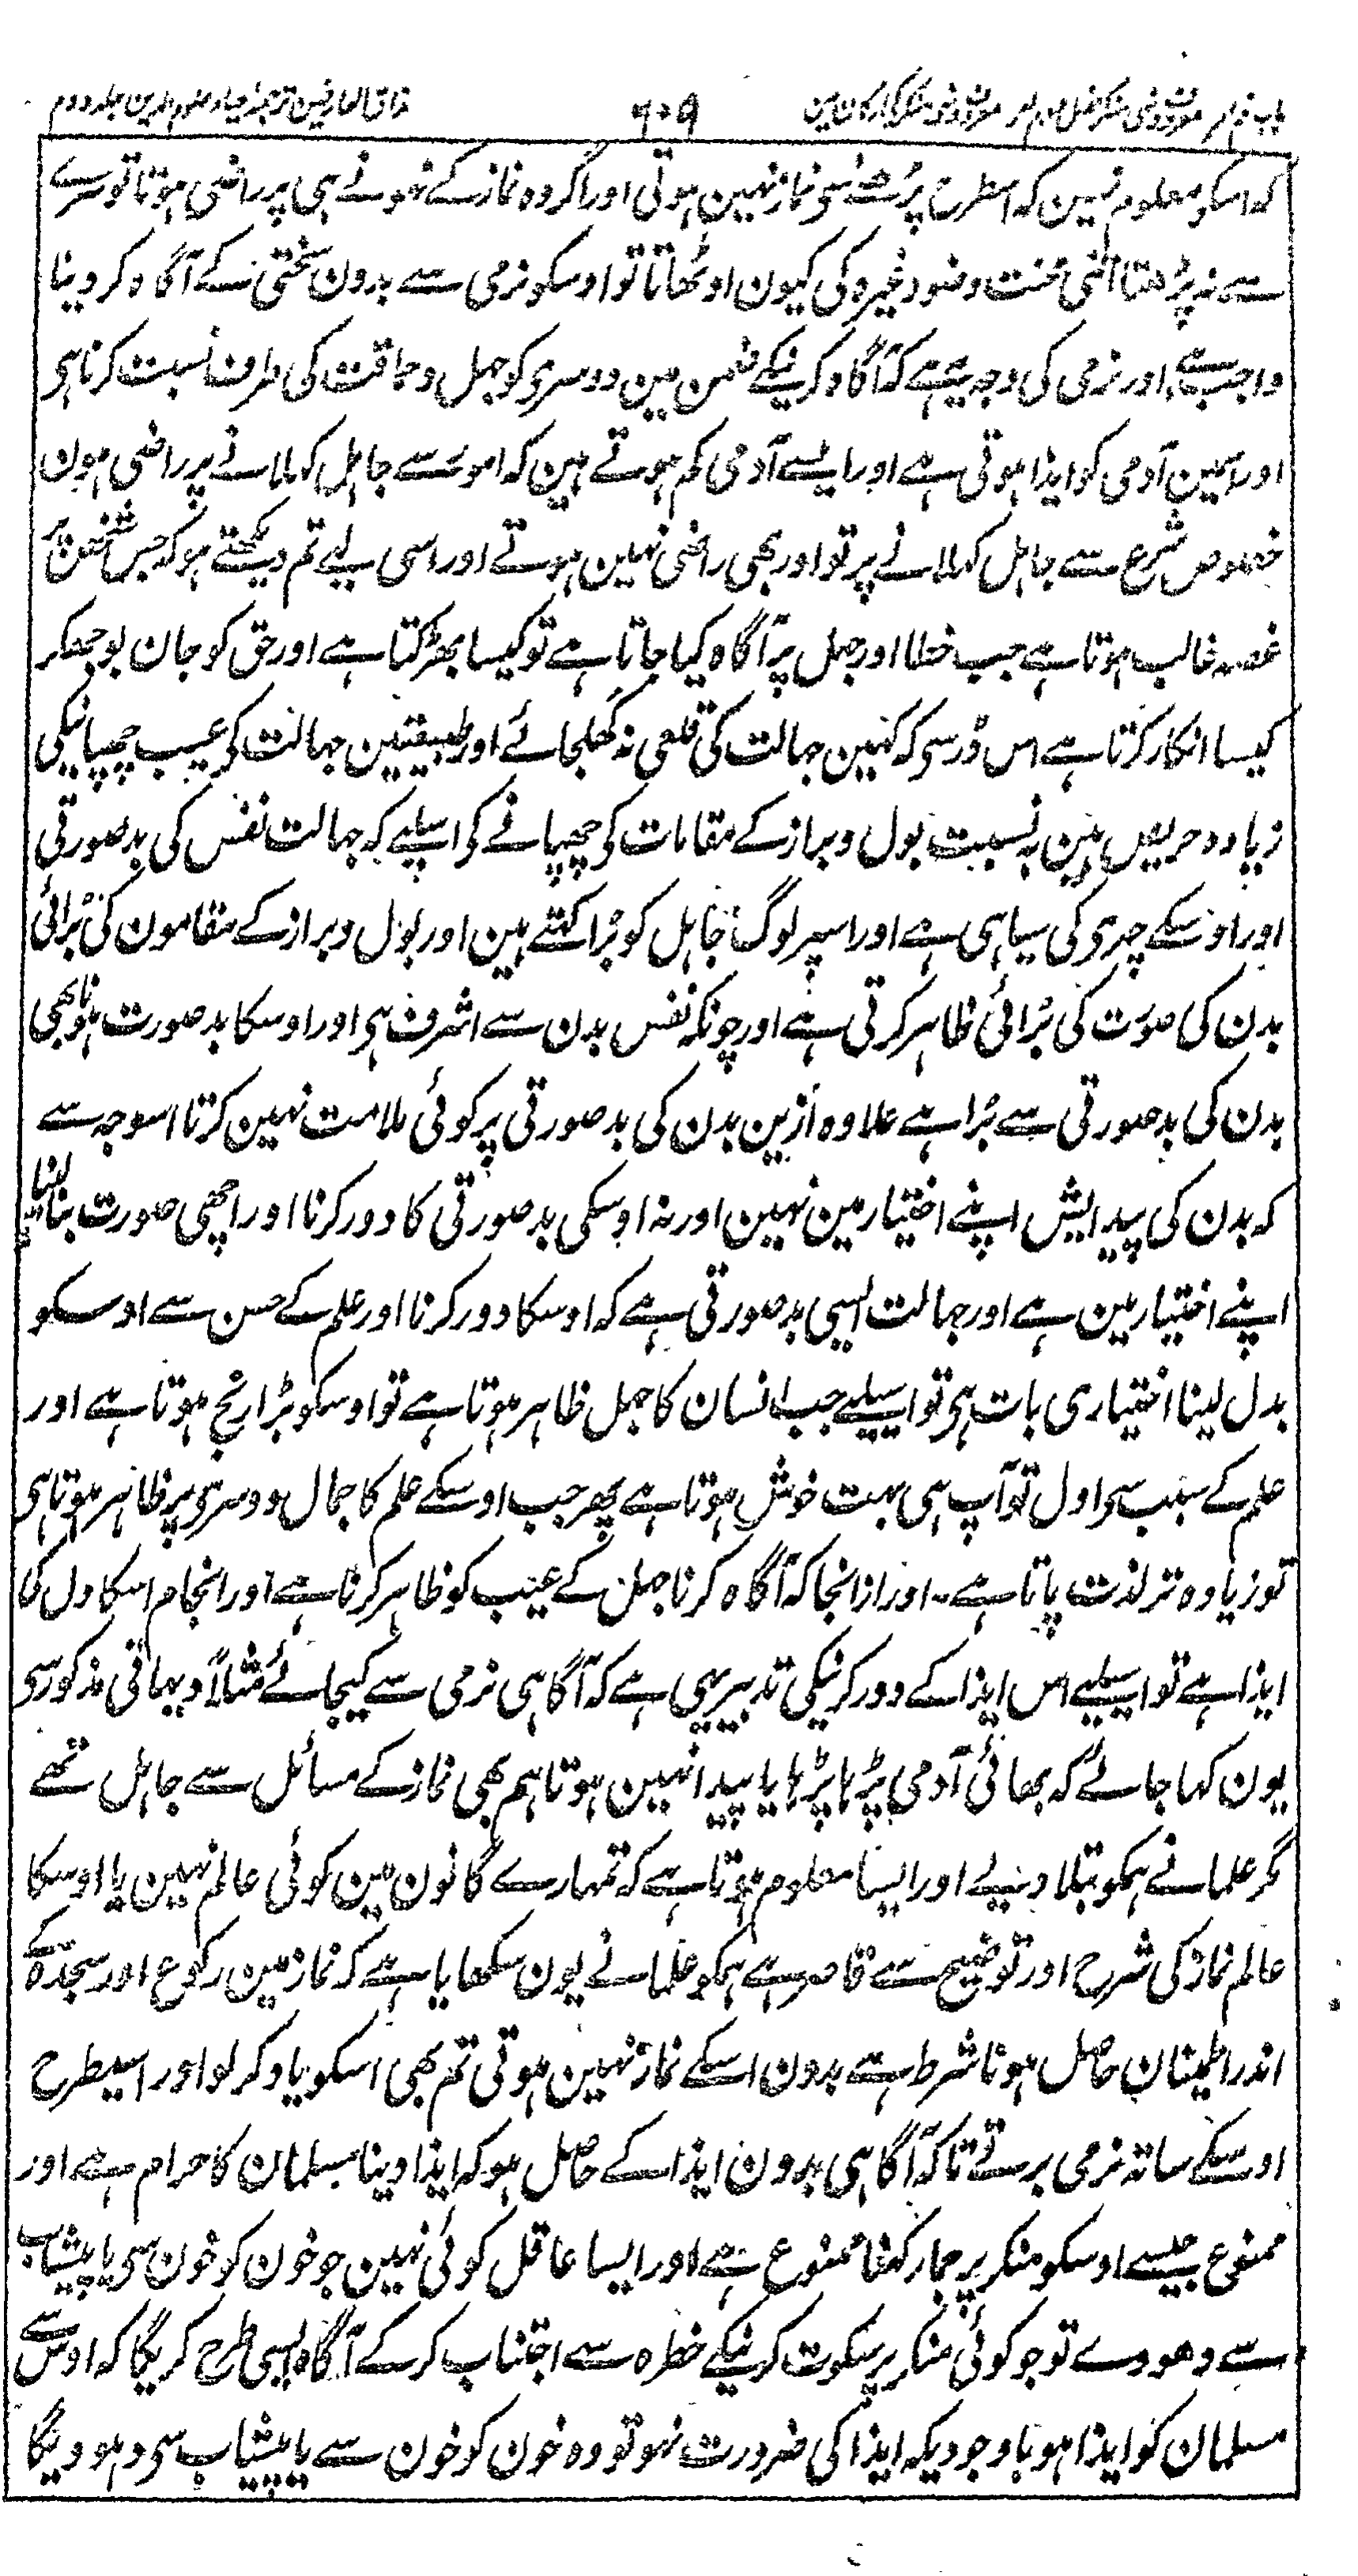 باب نہم امر معروف و نہی منکر فصل دوم امر معروف و نہی منکر کے ارکان میں ۶۰۹ مذاق العارفین ترجمہ احیاء علوم الدین جلد دوم
کہ اسکو معلوم نہین کہ اسطرح پڑھنے سی نماز نہین ہوتی اور اگر وہ نماز کے نہونے ہی پر راضی ہوتا تو سرے
سے نہ پڑھتا اتنی محنت وضو وغیرہ کی کیون اوٹھاتا تو اوسکو نرمی سے بدون سختی کے آگاہ کر دینا
واجب ہے اور نرمی کی وجہ یہ ہے کہ آگاہ کرنیکے ضمن مین دوسری کو جہل و حماقت کی طرف نسبت کرنا ہی
اور اسمین آدمی کو ایذا ہوتی ہے اور ایسے آدمی کم ہوتے ہین کہ امور سے جاہل کہلانے پر راضی ہون
خصوص شرع سے جاہل کہلانے پر تو اور بھی راضی نہین ہوتے اور اسی لیے تم دیکھتے ہو کہ جس شخص پر
غصہ غالب ہوتا ہے جب خطا اور جہل پر آگاہ کیا جاتا ہے تو کیسا بھڑکتا ہے اور حق کو جان بوجھکر
کیسا انکار کرتا ہے اس ڈر سی کہ کہین جہالت کی قلعی نہ کھلجائے اور طبیعتین جہالت کی عیب چھپانیکی
زیادہ حریص ہین بہ نسبت بول و براز کے مقامات کی چھپانے کی اسلیے کہ جہالت نفس کی بد صورتی
اور اوسکے چہری کی سیاہی ہے اور اسپر لوگ جاہل کو بُرا کہتے ہین اور بول و براز کے مقامون کی بُرائی
بدن کی صورت کی بُرائی ظاہر کرتی ہے اور چونکہ نفس بدن سے اشرف ہی اور اوسکا بد صورت ہونا بھی
بدن کی بد صورتی سے بُرا ہے علاوہ ازین بدن کی بد صورتی پر کوئی ملامت نہین کرتا اسوجہ سے
کہ بدن کی پیدایش اپنے اختیار مین نہین اور نہ اوسکی بد صورتی کا دور کرنا اور اچھی صورت بنا لینا
اپنے اختیار مین ہے اور جہالت ایسی بد صورتی ہے کہ اوسکا دور کرنا اور علم کے حسن سے اوسکو
بدل لینا اختیاری بات ہی تو اسیلیے جب انسان کا جہل ظاہر ہوتا ہے تو اوسکو بڑا رنج ہوتا ہے اور
علم کے سبب سی اول تو آپ ہی بہت خوش ہوتا ہے پھر جب اوسکے علم کا جمال دوسری پر ظاہر ہوتا ہی
تو زیادہ تر لذت پاتا ہے۔ اور ازانجا کہ آگاہ کرنا جہل کے عیب کو ظاہر کرنا ہے اور انجام اسکا دل کی
ایذا ہے تو اسیلیے اس ایذا کے دور کرنیکی تدبیر یہی ہے کہ آگاہی نرمی سے کیجائے مثلاً دہیاتی مذکور سی
یون کہا جائے کہ بھائی آدمی پڑہا پڑہایا پیدا نہین ہوتا ہم بھی نماز کے مسائل سے جاہل تھے
مگر علما نے ہمکو بتلا دیئے اور ایسا معلوم ہوتا ہے کہ تمہارے گانون مین کوئی عالم نہین یا اوسکا
عالم نماز کی شرح اور توضیح سے قاصر ہے ہمکو علما نے یون سکھایا ہے کہ نماز مین رکوع اور سجدہ کے
اندر اطمینان حاصل ہونا شرط ہے بدون اسکے نماز نہین ہوتی تم بھی اسکو یاد کر لو اور اسیطرح
اوسکے ساتھ نرمی برتے تا کہ آگاہی بدون ایذا کے حاصل ہو کہ ایذا دینا مسلمان کا حرام ہے اور
ممنوع جیسے اوسکو منکر پر جما رکھنا ممنوع ہے اور ایسا عاقل کوئی نہین جو خون کو خون سی یا پیشاب
سے دھووے تو جو کوئی منکر پر سکوت کرنیکے خطرہ سے اجتناب کر کے آگاہ ایسی طرح کریگا کہ اوس سے
مسلمان کو ایذا ہو باوجودیکہ ایذا کی ضرورت نہو تو وہ خون کو خون سے یا پیشاب سی دہوویگا